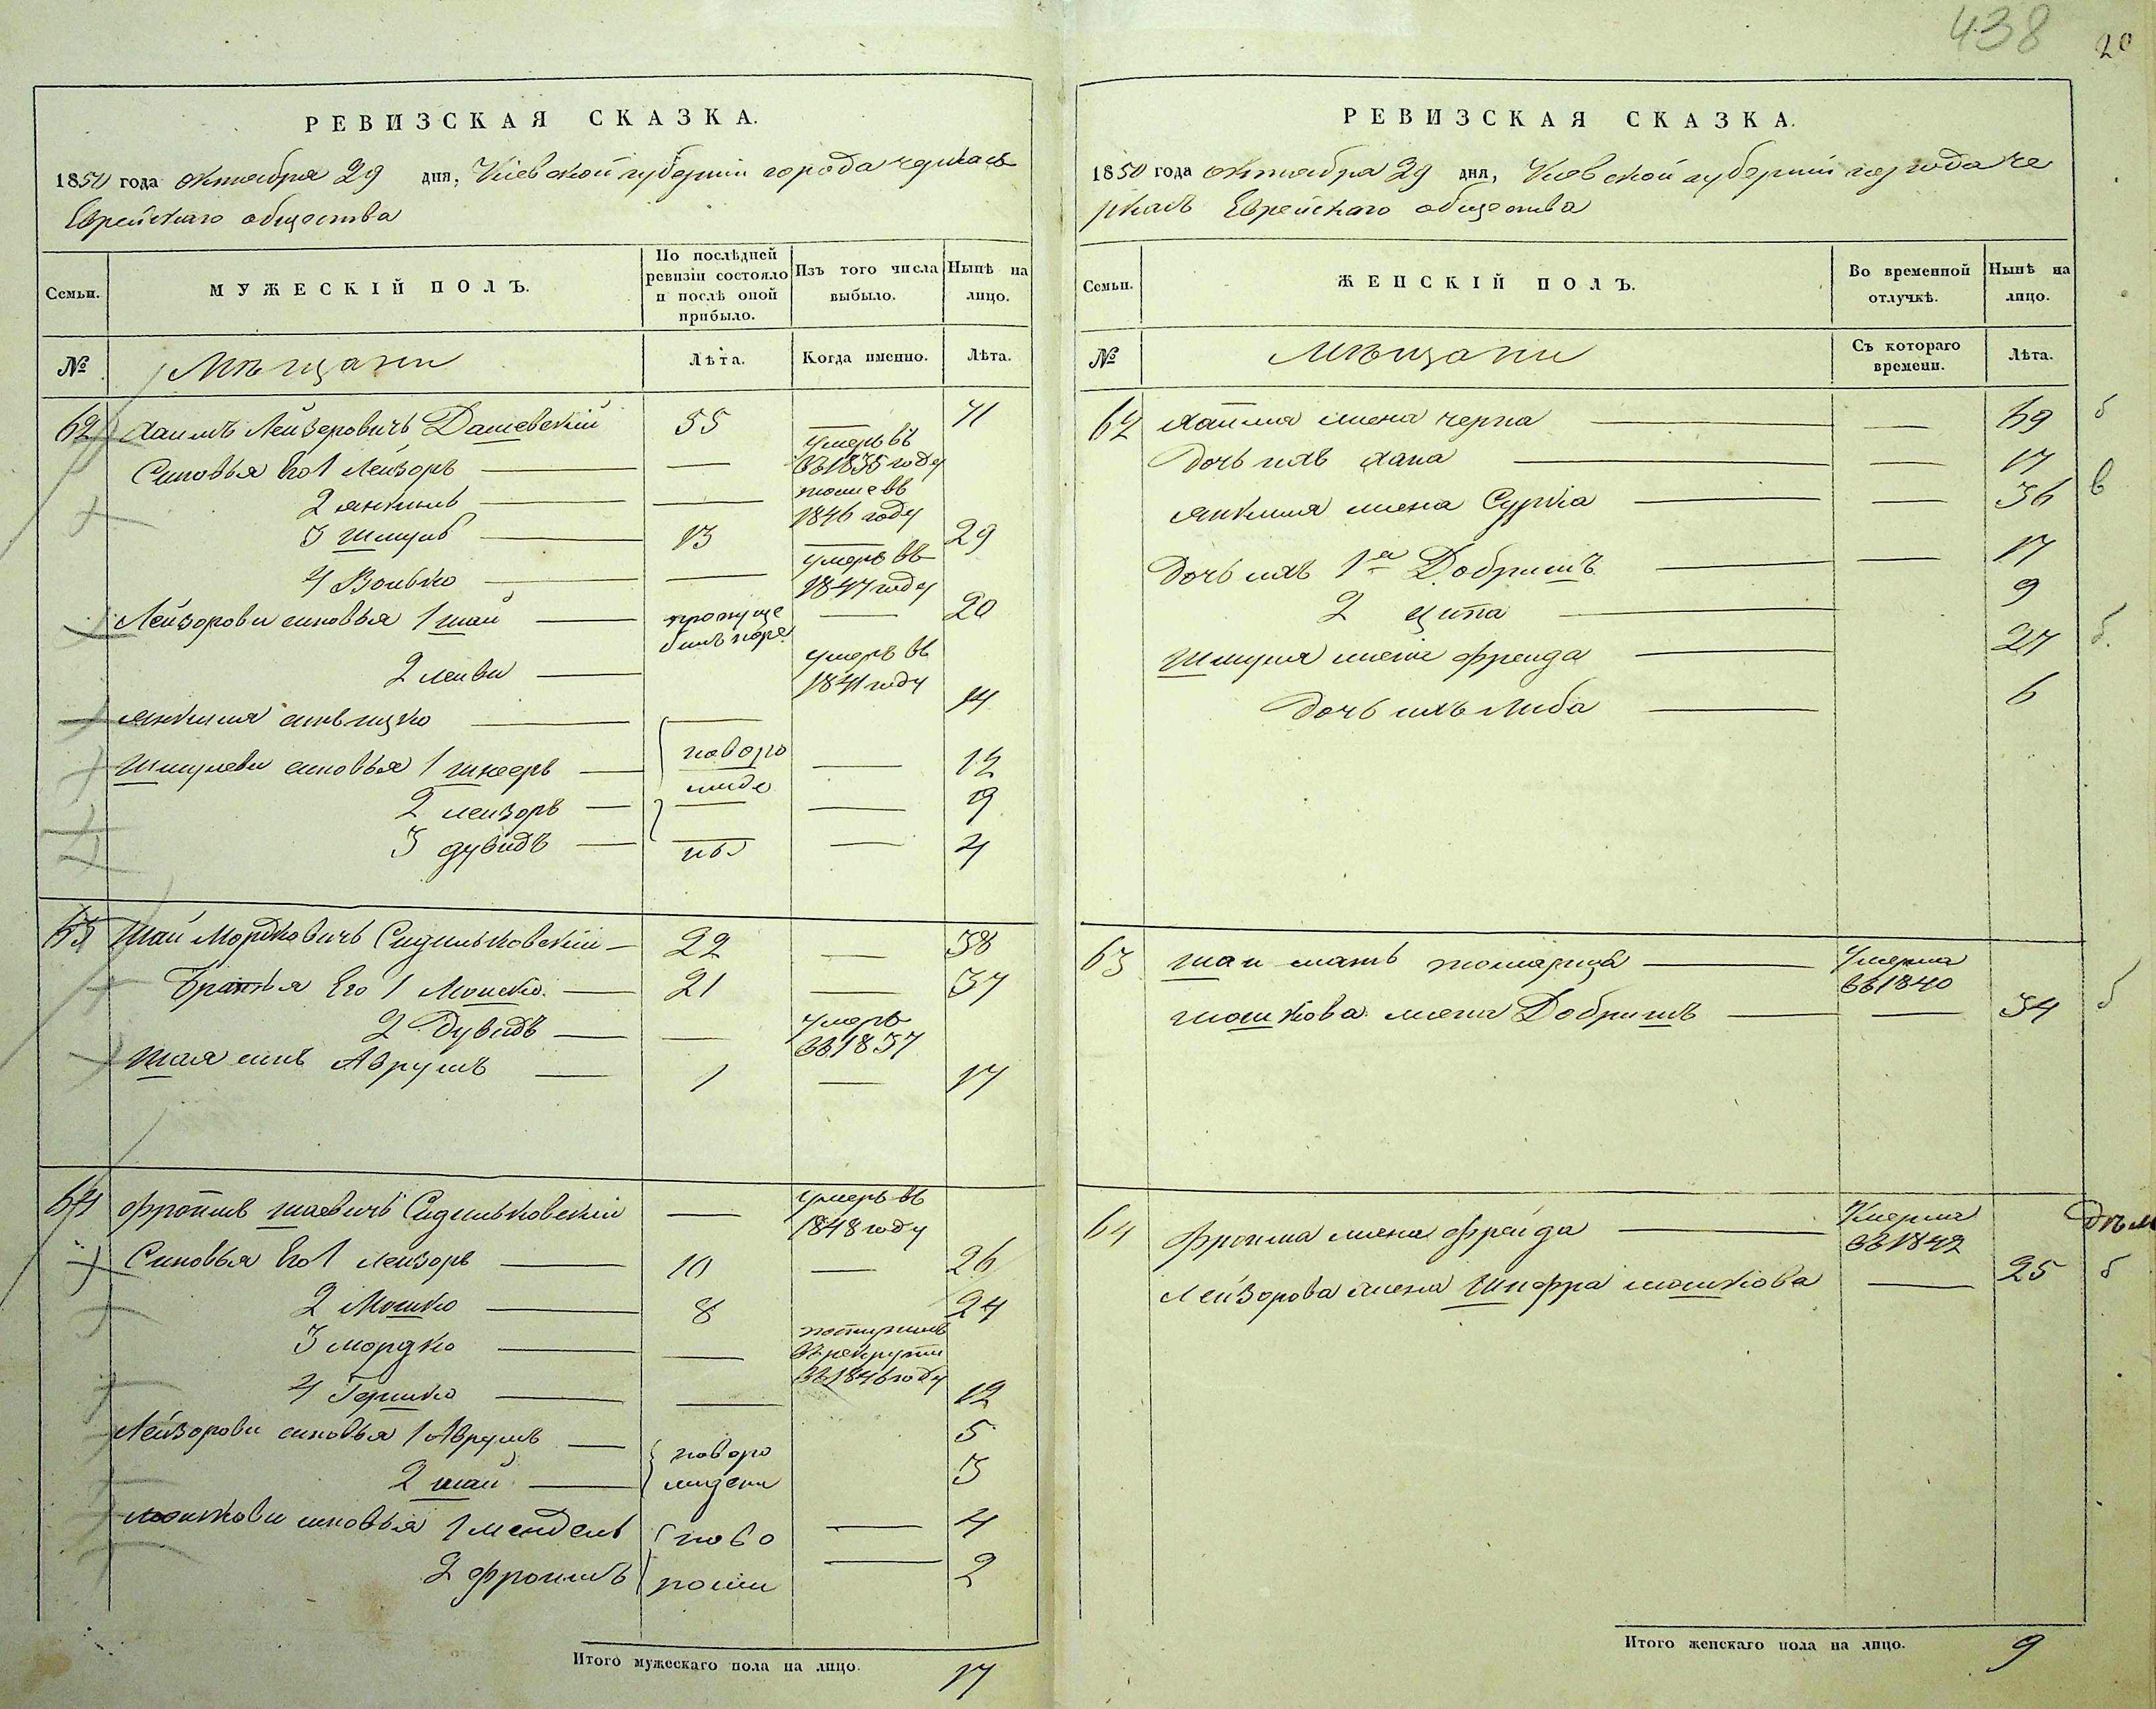 438
20
РЕВИЗСКАЯ СКАЗКА.
1850 года октября 29 дня, Киевской губерніи города Черкасъ
Еврейскаго общества
Семьи.
МУЖЕСКІЙ ПОЛЪ.
По послѣдней
ревизіи состояло
и послѣ оной
прибыло.
Изъ того числа
выбыло.
Нынѣ на
лицо.
№
Мѣщани
Лѣта.
Когда именно.
Лѣта.
62 Хаимъ Лейзеровичъ Дашевскій 55 71
Синовья Его 1 Лейзоръ умеръ въ 1835 году
2 янкель
1846 году
3 Шмуль 13 29
4 Волько умеръ въ 1847 году
Лейзорови синовья 1 шай 20
2 леиви умеръ въ 1841 году
янкеля синъ ицко 14
Шмулеви синовья 1 шнееръ новоро 12
2 лейзоръ жде 9
3 дувидъ ны 4
63 Шай Мордковичъ Сидельковскій 22 38
Братья Его 1 Мошко 21 37
2 Дувидъ умеръ въ 1837
Шая синъ Аврумъ 1 17
64 Фроимъ шаевичъ Сидельковскій умеръ въ 1848 году
Синовья Его 1 лейзоръ 10 26
2 Мошко 8 24
3 мордко поступилъ в рекруты въ 1846 году
4 Гершко 12
Лейзорови синовья 1 Аврумъ новоро 5
2 шай ждени 3
мошкови синовья 1 мендель ново 4
2 фроимъ рожи 2
Итого мужескаго пола на лицо. 17
РЕВИЗСКАЯ СКАЗКА.
1850 года октября 29 дня, Киевской губерніи города Че
ркасъ Еврейскаго общества
Семьи.
ЖЕНСКІЙ ПОЛЪ.
Во временной
отлучкѣ.
Нынѣ на
лицо.
№
Мѣщани
Съ котораго
времени.
Лѣта.
62 Хаима жена черна 69 б
дочь ихъ хана 17
янкеля жена Сурка 36 в
Дочь ихъ 1а Добришъ 17
2 ципа 9
Шмуля жена фрейда 27 б.
дочь ихъ Либа 6
63 шаи мать умерла въ 1840
мошкова жена Добришъ 34 б
64 Фроима жена фрейда умерла въ 1842
Лейзорова жена Шифра мошкова 25 б
Итого женскаго пола на лицо. 9